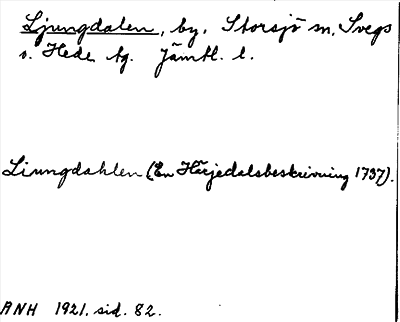 Ljungdalen, by, Storsjö sn, Svegs
o. Hede tg. Jämtl. l.
Liungdahlen (En Härjedalsbeskrivning 1737).
ANH 1921. sid. 82.